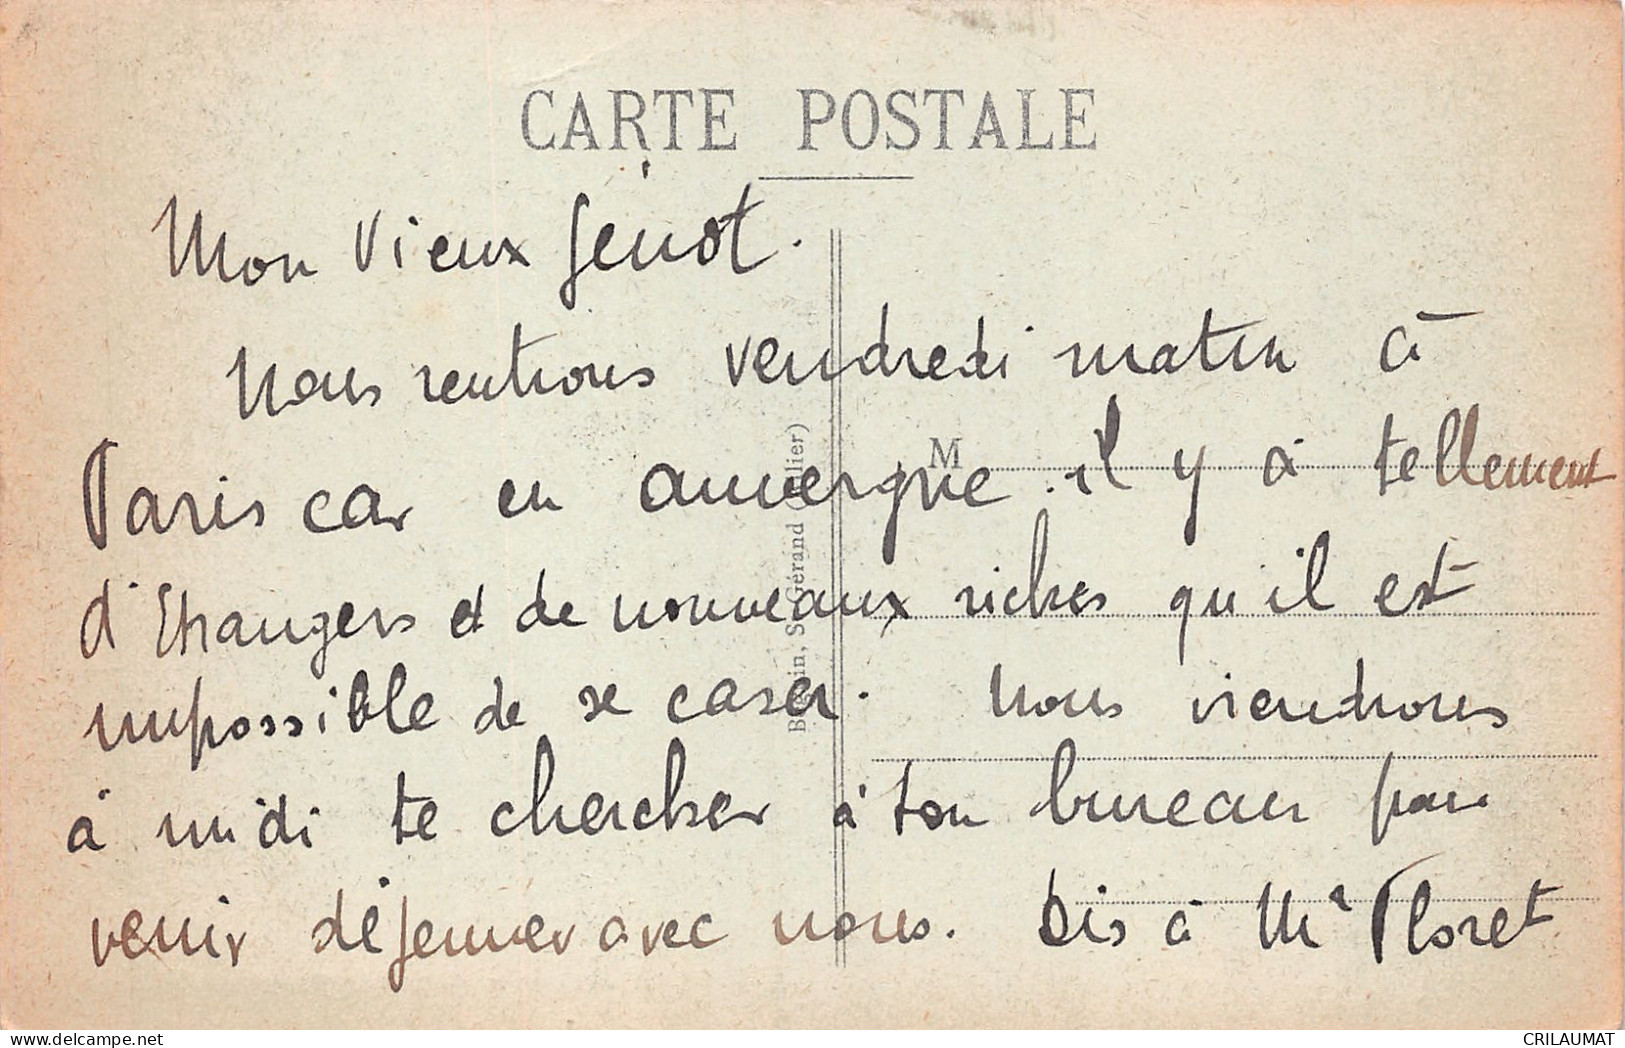 CARTE POSTALE
Mon Vieux Génot.
Nous rentrons vendredi matin à
Paris car en auvergne il y à tellement
d'Etrangers et de nouveaux riches qu'il est
impossible de se caser. Nous viendrons
à midi te chercher à ton bureau pour
venir déjeuner avec nous. Dis à Mr Floret
M
Gérand
CRILAUMAT